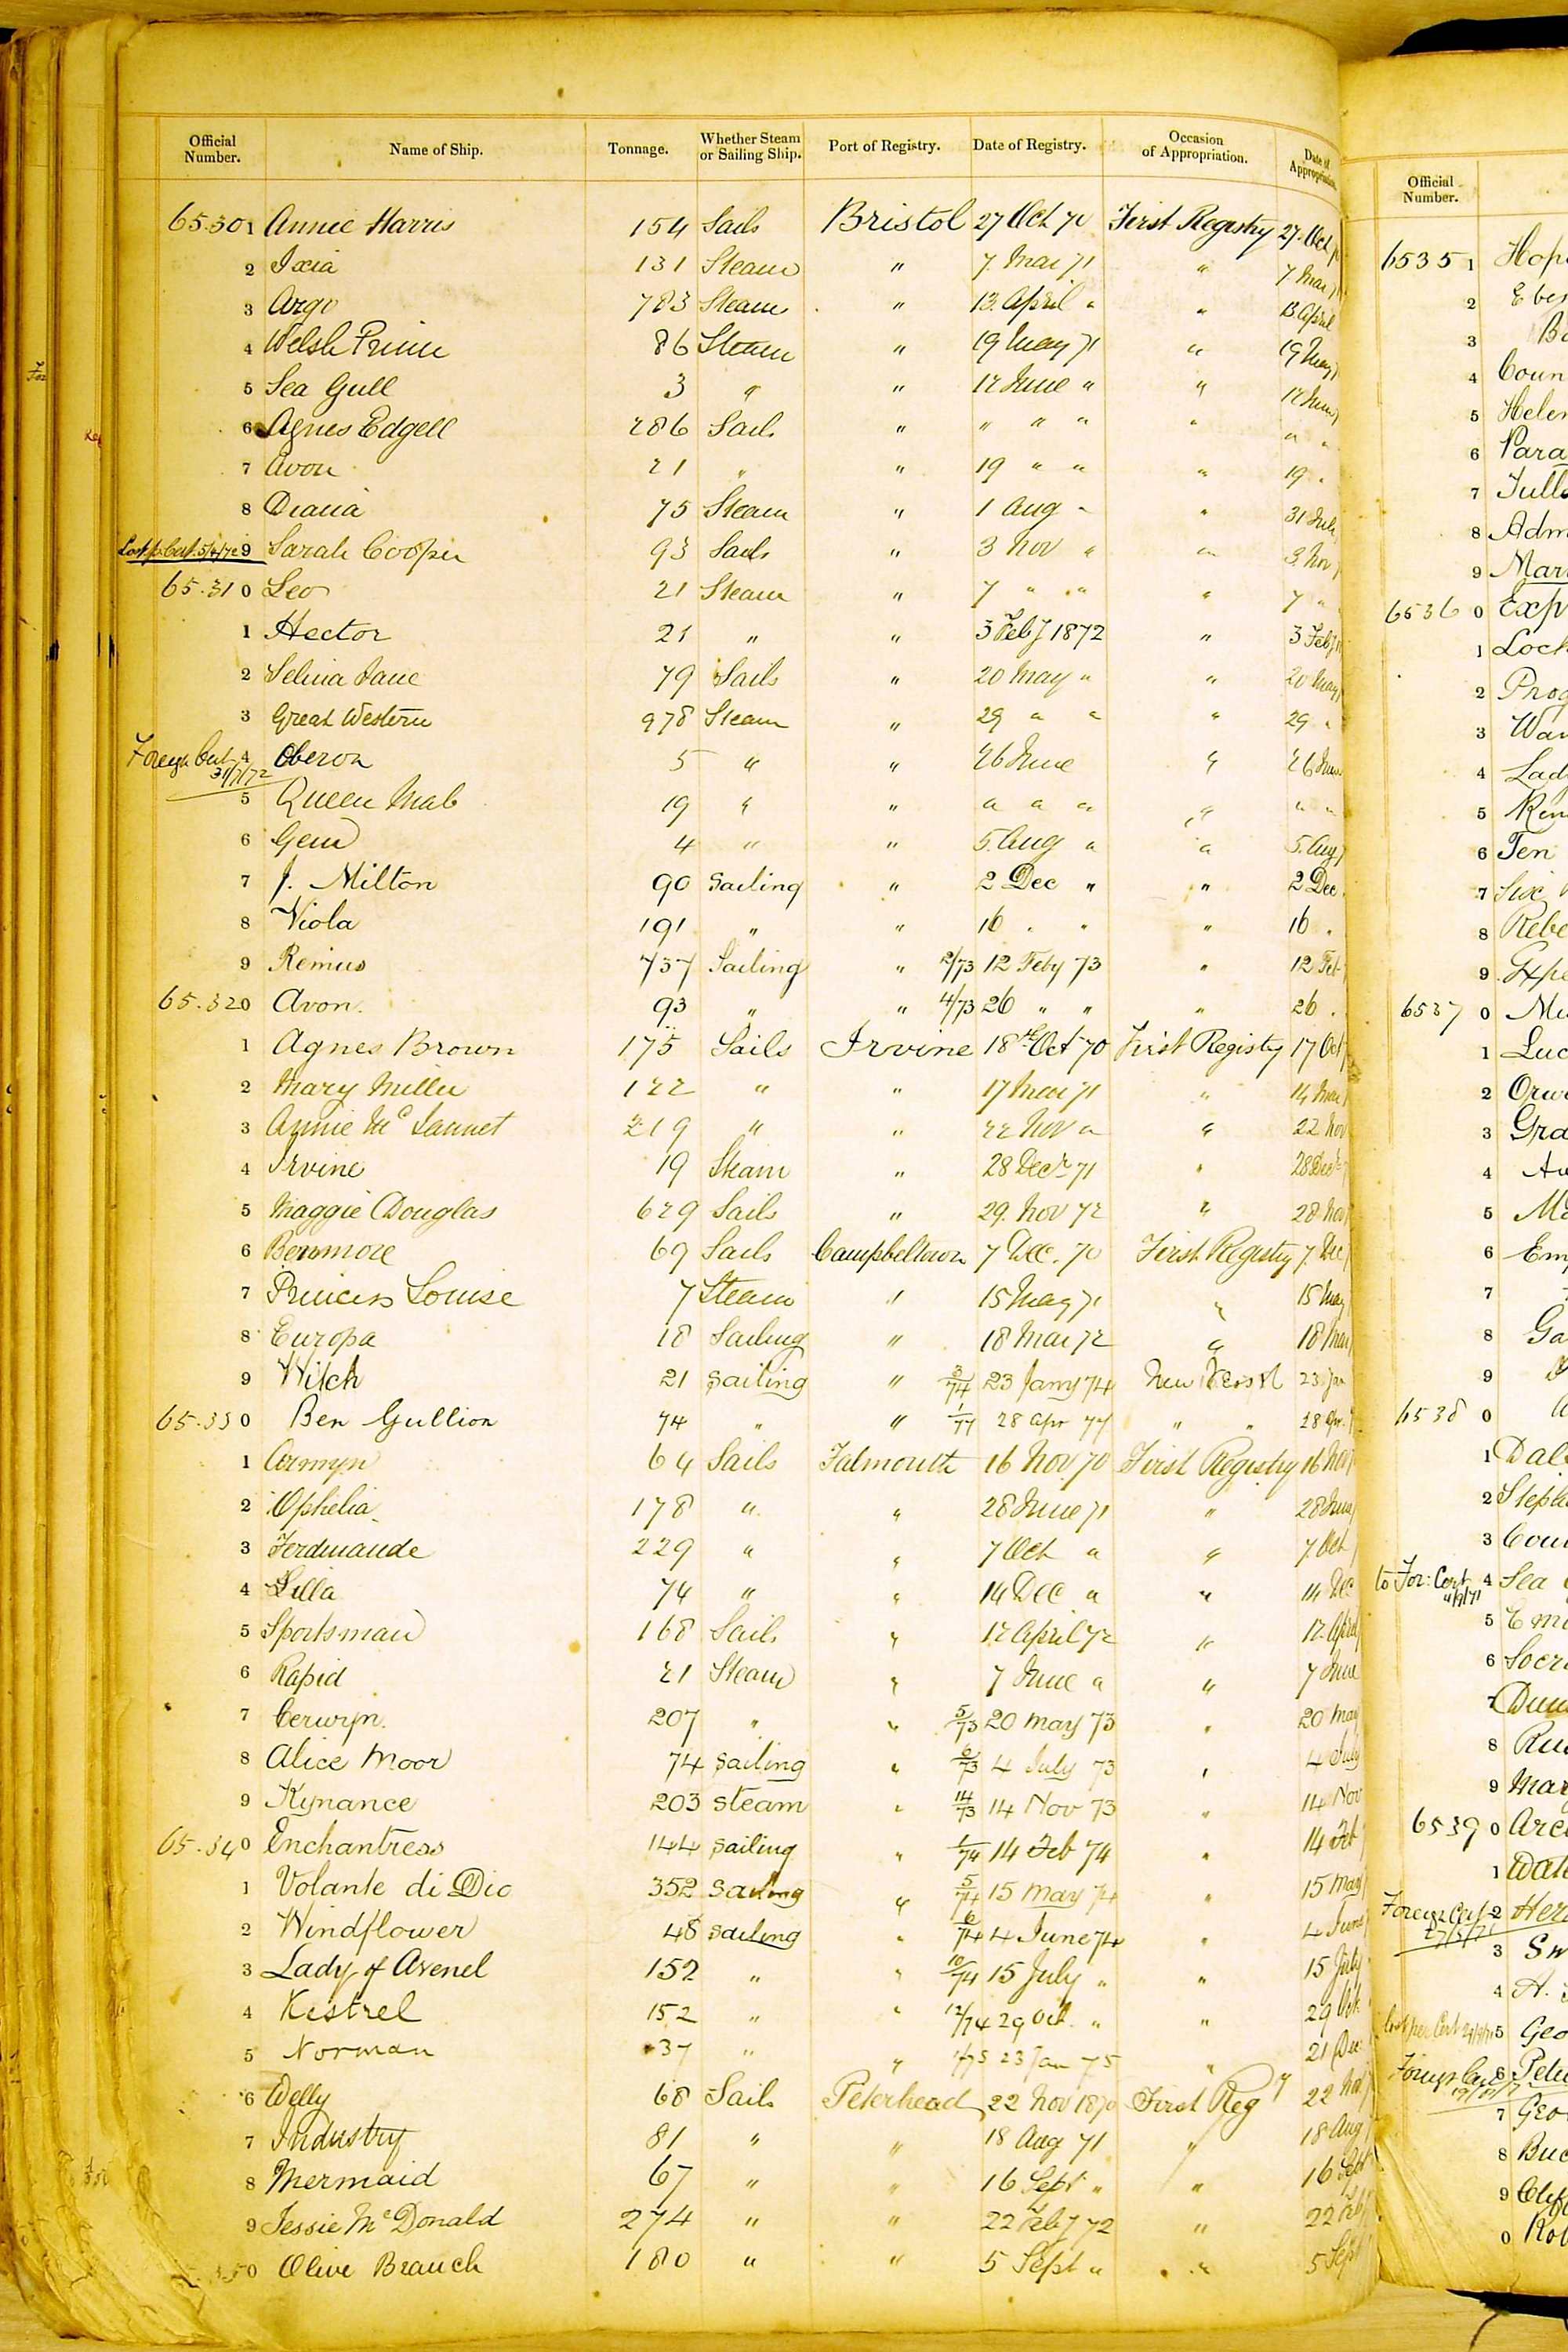 Official Number. Name of Ship. Tonnage. Whether Steam or Sailing Ship. Port of Registry. Date of Registry. Occasion of Appropriation. Date of Appropriation.
65.301 Annie Harris 154 Sails Bristol 27 Oct 70 First Registry 27. Oct
2 Ixia 131 Steam " 7. Mar 71 " 7 Mar
3 Argo 783 Steam " 13. April " " 13 April
4 Welsh Prince 86 Steam " 19 May 71 " 19 May
5 Sea Gull 3 " " 12 June " " 12 June
6 Agnes Edgell 286 Sails " " " " " " "
7 Avon 21 " " 19 " " " 19 "
8 Diana 75 Steam " 1 Aug " " 31 July
Lost p. Cert. 5/4/72 9 Sarah Cooper 93 Sails " 3 Nov " " 3 Nov
65.310 Leo 21 Steam " 7 " " " 7 "
1 Hector 21 " " 3 Feby 1872 " 3 Feby
2 Selina Jane 79 Sails " 20 May " " 20 May
3 Great Western 978 Steam " 29 " " " 29 "
Foreign Cert 31/7/72 4 Oberon 5 " " 26 June " 26 June
5 Queen Mab 19 " " " " " " " "
6 Gem 4 " " 5. Aug " " 5. Aug
7 J. Milton 90 Sailing " 2 Dec " " 2 Dec
8 Viola 191 " " 16 " " " 16 "
9 Remus 737 Sailing " 2/73 12 Feby 73 " 12 Feb
65.320 Avon. 93 " " 4/73 26 " " " 26 "
1 Agnes Brown 175 Sails Irvine 18th Oct 70 First Registy 17 Oct
2 Mary Miller 122 " " 17 Mar 71 " 14 Mar
3 Annie Mc 219 " " 22 Nov " " 22 Nov
4 Irvine 19 Steam " 28 Decr 71 " 28 Decr
5 Maggie Douglas 629 Sails " 29. Nov 72 " 28 Nov
6 Benmore 69 Sails Campbeltown 7 Dec. 70 First Registry 7. Dec
7 Princess Louise 7 Steam " 15 May 71 " 15 May
8 Europa 18 Sailing " 18 Mar 72 " 18 Mar
9 Witch 21 Sailing " 3/74 23 Jany 74 New Vessel 23 Jan
65.330 Ben Gullion 74 " " 1/77 28 Apr 77 " " 28 Apr.
1 Armyn 64 Sails Falmouth 16 Nov 70 First Registry 16 Nov
2 Ophelia 178 " " 28 June 71 " 28 June
3 Ferdinande 229 " " 7 Oct " " 7. Oct
4 Lilla 74 " " 14 Dec " " 14 Dec
5 Sportsman 168 Sails " 12 April 72 " 12. April
6 Rapid 21 Steam " 7 June " " 7 June
7 Cerwyn. 207 " " 5/73 20 May 73 " 20 May
8 Alice Moor 74 Sailing " 6/73 4 July 73 " 4 July
9 Kynance 203 Steam " 14/73 14 Nov 73 " 14 Nov
65.340 Enchantress 144 Sailing " 1/74 14 Feb 74 " 14 Feb
1 Volante di Dio 352 Sailing " 5/74 15 May 74 " 15 May
2 Windflower 48 Sailing " 6/74 4 June 74 " 4 June
3 Lady of Avenel 152 " " 10/74 15 July " " 15 July
4 Kestrel 152 " " 12/74 29 Oct. " " 29 Oct.
5 Norman 37 " " 1/75 23 Jan 75 " 21 Dec
6 Welly 68 Sails Peterhead 22 Nov 1870 First Regy 22 Nov
7 Industry 81 " " 18 Aug 71 " 18 Aug
8 Mermaid 67 " " 16 Sept " " 16 Sept
9 Jessie McDonald 274 " " 22 Feby 72 " 22 Feby
50 Olive Branch 180 " " 5 Sept " " 5 Sept
Official Number.
65351
2
3
4 Coun
5 Helen
6 Para
7
8 Adm
9 Mar
65360 Exp
1 Loch
2 Prog
3 Wan
4 Lad
5
6 Ten
7 Six
8 Rebe
9 Expe
65370
1 Luc
2 Orw
3 Gra
4
5
6 Em
7
8 Ga
9
65380
1 Dal
2 Steph
3 Cou
to For: Cert 4 Sea
5 Emi
6 Socr
7
8
9 Mar
65390 Arc
1
Foreign Cert 2
3 Sw
4 A.
Lost per Cert 5 Geo
Foreign Cert 6 Pet
7 Geo
8 Buc
9
0 Rob